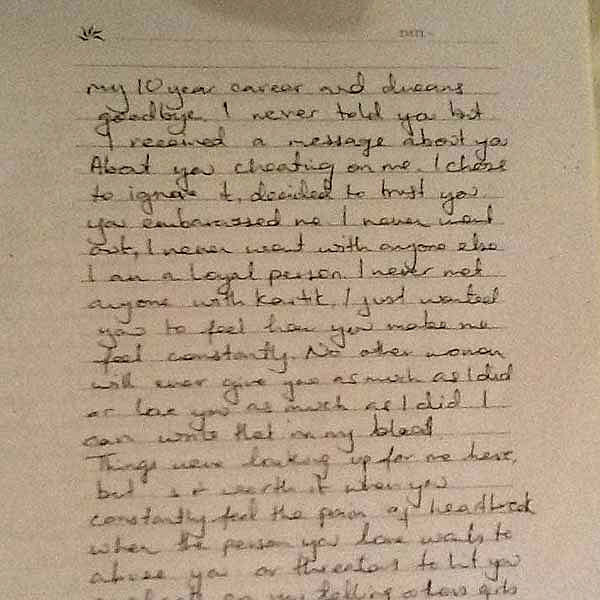 DATE
my 10 year career and dreams
goodbye. I never told you but
I received a message about you
About you cheating on me. I chose
to ignore it, decided to trust you
you embarassed me I never went
out, I never went with anyone else
I am a Loyal person. I never met
anyone with Kartik. I just wanted
you to feel how you make me
feel constantly. No other woman
will ever give you as much as I did
or love you as much as I did I
can write that in my blood
Things were looking up for me here,
but is it worth it when you
constantly feel the pain of heartbreak
when the person you love wants to
abuse you or threatens to hit you
on you telling other girls